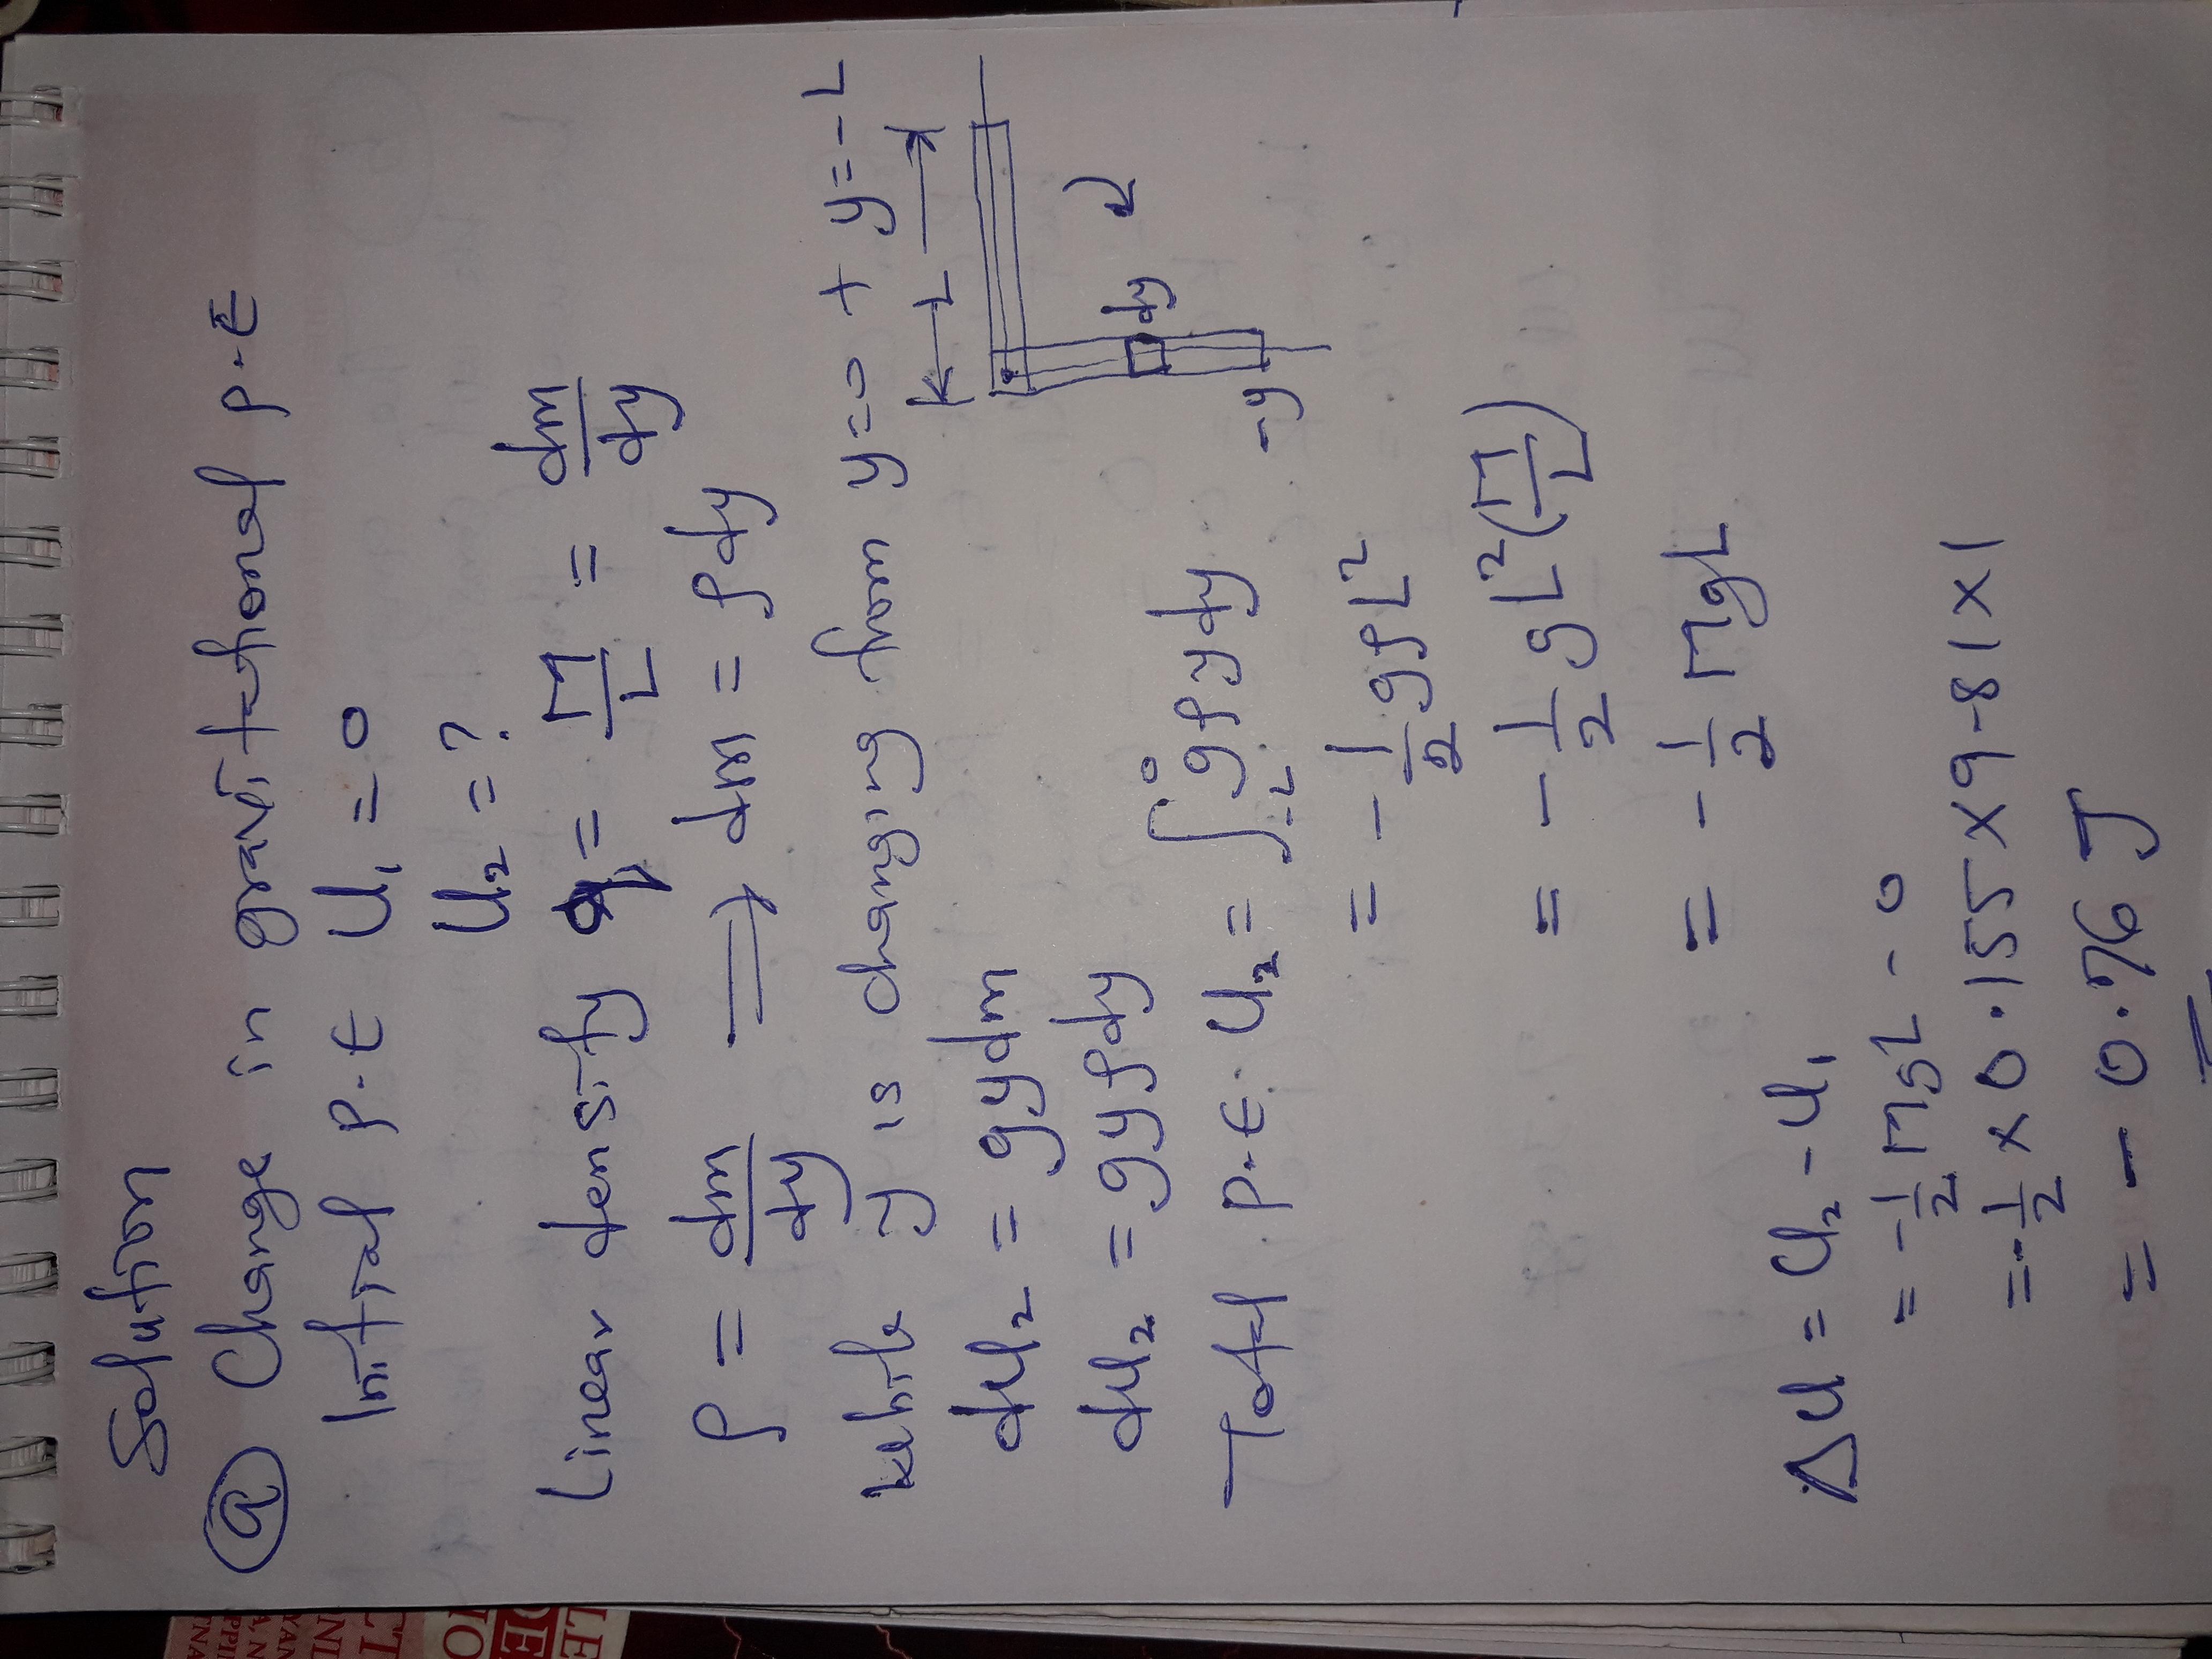 Solution
(a) Change in gravitational P.E
Initial P.E U₁ = 0
U₂ = ?
Linear density ρ = M/L = dm/dy
ρ = dm/dy ⟹ dm = ρdy
while y is changing from y=0 to y=-L
dU₂ = gydm
L
dU₂ = gyρdy
dy
-y
Total P.E. U₂ = ∫₋L⁰ gρydy
= -1/2 gρL²
= -1/2 gL²(M/L)
= -1/2 MgL
ΔU = U₂ - U₁
= -1/2 MgL - 0
= -1/2 × 0.155 × 9.81 × 1
= - 0.76 J